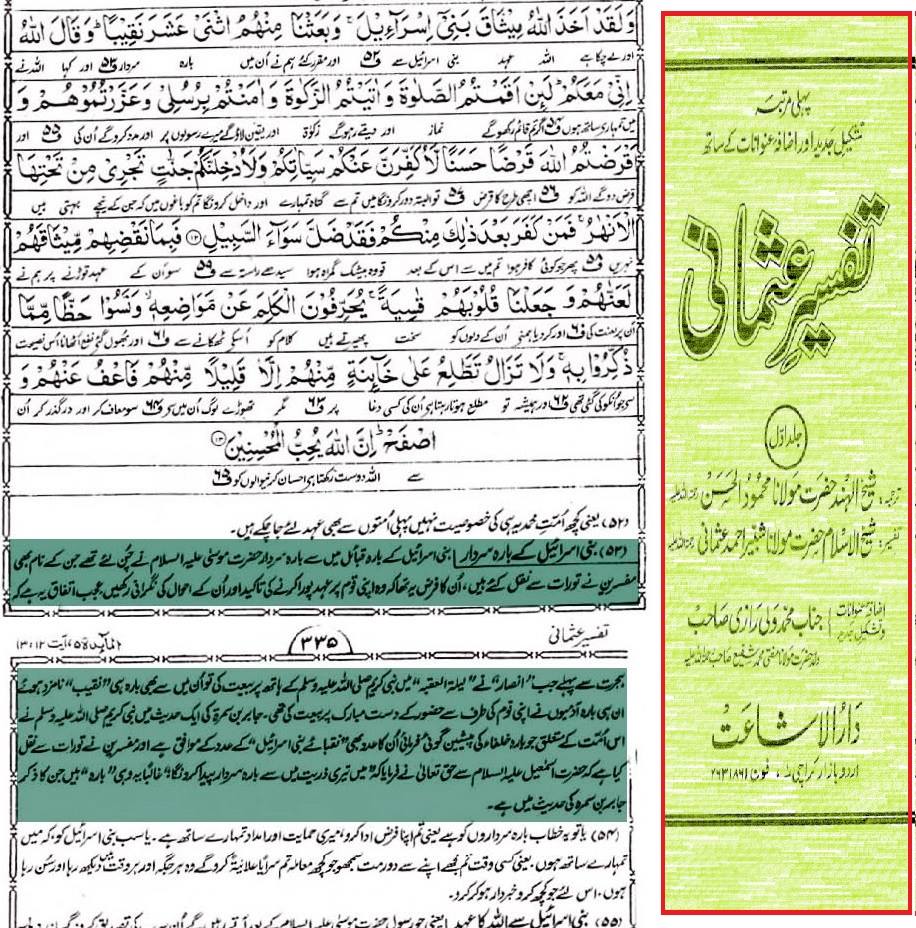 وَلَقَدْ اَخَذَ اللهُ مِيْثَاقَ بَنِيْٓ اِسْرَآءِيْلَ ۚ وَبَعَثْنَا مِنْهُمُ اثْنَيْ عَشَرَ نَقِيْبًا ؕ وَقَالَ اللهُ
اور لے چکا ہے اللہ عہد بنی اسرائیل سے ف۵۲ اور مقرر کئے ہم نے اُن میں بارہ سردار ف۵۳ اور کہا اللہ نے
اِنِّيْ مَعَكُمْ ؕ لَئِنْ اَقَمْتُمُ الصَّلٰوةَ وَاٰتَيْتُمُ الزَّكٰوةَ وَاٰمَنْتُمْ بِرُسُلِيْ وَعَزَّرْتُمُوْهُمْ وَ
میں تمہارے ساتھ ہوں ف۵۴ اگر تم قائم رکھو گے نماز اور دیتے رہو گے زکوٰۃ اور یقین لاؤ گے میرے رسولوں پر اور مدد کرو گے اُن کی ف۵۵ اور
اَقْرَضْتُمُ اللهَ قَرْضًا حَسَنًا لَّاُكَفِّرَنَّ عَنْكُمْ سَيِّاٰتِكُمْ وَلَاُدْخِلَنَّكُمْ جَنّٰتٍ تَجْرِيْ مِنْ تَحْتِهَا
قرض دو گے اللہ کو ف۵۶ اچھی طرح کا قرض ف۵۷ تو البتہ دور کرونگا میں تم سے گناہ تمہارے اور داخل کرونگا تم کو باغوں میں کہ جن کے نیچے بہتی ہیں
الْاَنْهٰرُ ۚ فَمَنْ كَفَرَ بَعْدَ ذٰلِكَ مِنْكُمْ فَقَدْ ضَلَّ سَوَآءَ السَّبِيْلِ ۝۱۲ فَبِمَا نَقْضِهِمْ مِّيْثَاقَهُمْ
نہریں ف۵۸ پھر جو کوئی کافر ہوا تم میں سے اس کے بعد تو وہ بیشک گمراہ ہوا سیدھے راستہ سے ف۵۹ سو اُن کے عہد توڑنے پر ہم نے
لَعَنّٰهُمْ وَجَعَلْنَا قُلُوْبَهُمْ قٰسِيَةً ۚ يُحَرِّفُوْنَ الْكَلِمَ عَنْ مَّوَاضِعِهٖ ۙ وَنَسُوْا حَظًّا مِّمَّا
اُن پر لعنت کی ف۶۰ اور کر دیا ہم نے اُن کے دلوں کو سخت پھیرتے ہیں کلام کو اُسکے ٹھکانے سے ف۶۱ اور بھول گئے نفع اٹھانا اُس نصیحت
ذُكِّرُوْا بِهٖ ۚ وَلَا تَزَالُ تَطَّلِعُ عَلٰى خَآئِنَةٍ مِّنْهُمْ اِلَّا قَلِيْلًا مِّنْهُمْ فَاعْفُ عَنْهُمْ وَ
سے جو اُنکو کی گئی تھی ف۶۲ اور ہمیشہ تو مطلع ہوتا رہتا ہے اُن کی کسی دغا پر ف۶۳ مگر تھوڑے لوگ اُن میں سے سو معاف کر اور درگذر کر اُن
اصْفَحْ ؕ اِنَّ اللهَ يُحِبُّ الْمُحْسِنِيْنَ ۝۱۳
سے اللہ دوست رکھتا ہے احسان کرنیوالوں کو ف۶۵
(۵۲) یعنی کچھ اُمتِ محمدیہ ہی کی خصوصیت نہیں پہلی اُمتوں سے بھی عہد لئے جا چکے ہیں۔
(۵۳) بنی اسرائیل کے بارہ سردار | بنی اسرائیل کے بارہ قبائل میں سے بارہ سردار حضرت موسیٰ علیہ السلام نے چن لئے تھے جن کے نام بھی
مفسرین نے تورات سے نقل کئے ہیں، اُن کا فرض یہ تھا کہ وہ اپنی قوم پر عہد پورا کرنے کی تاکید اور اُن کے احوال کی نگرانی رکھیں، عجب اتفاق یہ ہے کہ
تفسیر عثمانی
۳۳۵
المائدۃ ۵، آیت ۱۲، ۱۳
ہجرت سے پہلے جب "انصار" نے "لیلۃ العقبہ" میں نبی کریم صلی اللہ علیہ وسلم کے ہاتھ پر بیعت کی تو اُن میں سے بھی بارہ ہی "نقیب" نامزد ہوئے
ان ہی بارہ آدمیوں نے اپنی قوم کی طرف سے حضور کے دست مبارک پر بیعت کی تھی۔ جابر بن سمرۃ کی ایک حدیث میں نبی کریم صلی اللہ علیہ وسلم نے
اس اُمت کے متعلق جو بارہ خلفاء کی پیشین گوئی فرمائی اُن کا عدد بھی "نقبائے بنی اسرائیل" کے عدد کے موافق ہے اور مفسرین نے تورات سے نقل
کیا ہے کہ حضرت اسمٰعیل علیہ السلام سے حق تعالیٰ نے فرمایا کہ "میں تیری ذریت میں سے بارہ سردار پیدا کرونگا" غالباً یہ وہی "بارہ" ہیں جن کا ذکر
جابر بن سمرہ کی حدیث میں ہے۔
(۵۴) یا تو یہ خطاب بارہ سرداروں کو ہے یعنی تم اپنا فرض ادا کرو، میری حمایت اور امداد تمہارے ساتھ ہے۔ یا سب بنی اسرائیل کو، کہ میں
تمہارے ساتھ ہوں، یعنی کسی وقت تم مجھے اپنے سے دور مت سمجھو جو کچھ معاملہ تم سراً یا علانیۃً کرو گے وہ ہر جگہ اور ہر وقت میں دیکھ رہا اور سُن رہا
ہوں، اس لئے جو کچھ کرو خبردار ہو کر کرو۔
(۵۵) بنی اسرائیل سے اللہ کا عہد | یعنی جو رسول حضرت موسیٰ علیہ السلام کے بعد آتے رہیں گے اُن سب کی تصدیق کرو گے
پہلی مرتبہ
تشکیل جدید اور اضافہ عنوانات کے ساتھ
تفسیر عثمانی
جلد اوّل
ترجمہ: شیخ الہند حضرت مولانا محمود الحسن رحمۃ اللہ علیہ
تفسیر: شیخ الاسلام حضرت مولانا شبیر احمد عثمانی رحمۃ اللہ علیہ
اضافہ عنوانات و تشکیل جدید جناب محمد ولی رازی صاحب
ولد حضرت مولانا مفتی محمد شفیع صاحب رحمۃ اللہ علیہ
دار الاشاعت
اردو بازار کراچی ۱، فون ۲۶۳۱۸۶۱